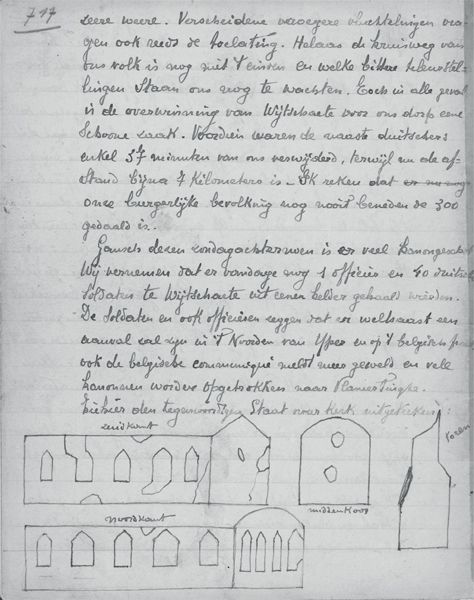 717
zeere weere. Verscheidene vroegere vluchtelingen vra-
gen ook reeds de toelating. Helaas de kruisweg van
ons volk is nog niet 't einden en welke bittere teleurstel-
lingen staan ons nog te wachten. Toch in alle geval
is de overwinning van Wijtschaete voor ons dorp eene
schoone zaak. Voordien waren de naaste duitschers
enkel 37 minuten van ons verwijderd, terwijl nu de af-
stand bijna 7 kilometers is. - Ik reken dat
onze burgerlijke bevolking nog nooit beneden de 300
gedaald is.
Gansch dezen zondagachternoen is er veel kanongeschut
Wij vernemen dat er vandage nog 1 officier en 40 duitsche
soldaten te Wijtschaete uit eenen kelder gehaald wierden.
De soldaten en ook officieren zeggen dat er welhaast een
aanval zal zijn in 't Noorden van Yper en op 't belgisch front
ook de belgische communiqué meldt meer geweld en vele
kanonnen worden opgetrokken naar Vlamertinghe.
Ziehier den tegenwoordigen Staat onzer Kerk uitgekeken:
zuidkant
middenkoor
Toren
Noordkant